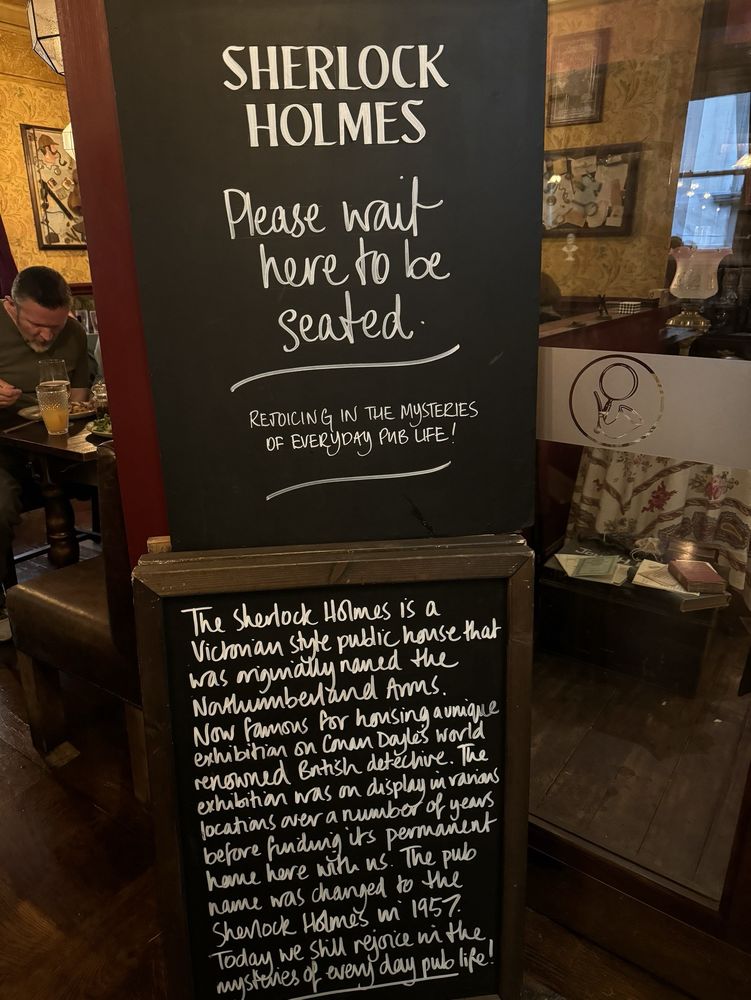 SHERLOCK
HOLMES
Please wait
here to be
seated.
REJOICING IN THE MYSTERIES
OF EVERYDAY PUB LIFE!
The Sherlock Holmes is a
Victorian style public house that
was originally named the
Northumberland Arms.
Now famous for housing a unique
exhibition on Conan Doyle's world
renowned British detective. The
exhibition was on display in various
locations over a number of years
before funding its permanent
home here with us. The pub
name was changed to the
Sherlock Holmes in 1957.
Today we still rejoice in the
mysteries of every day pub life!